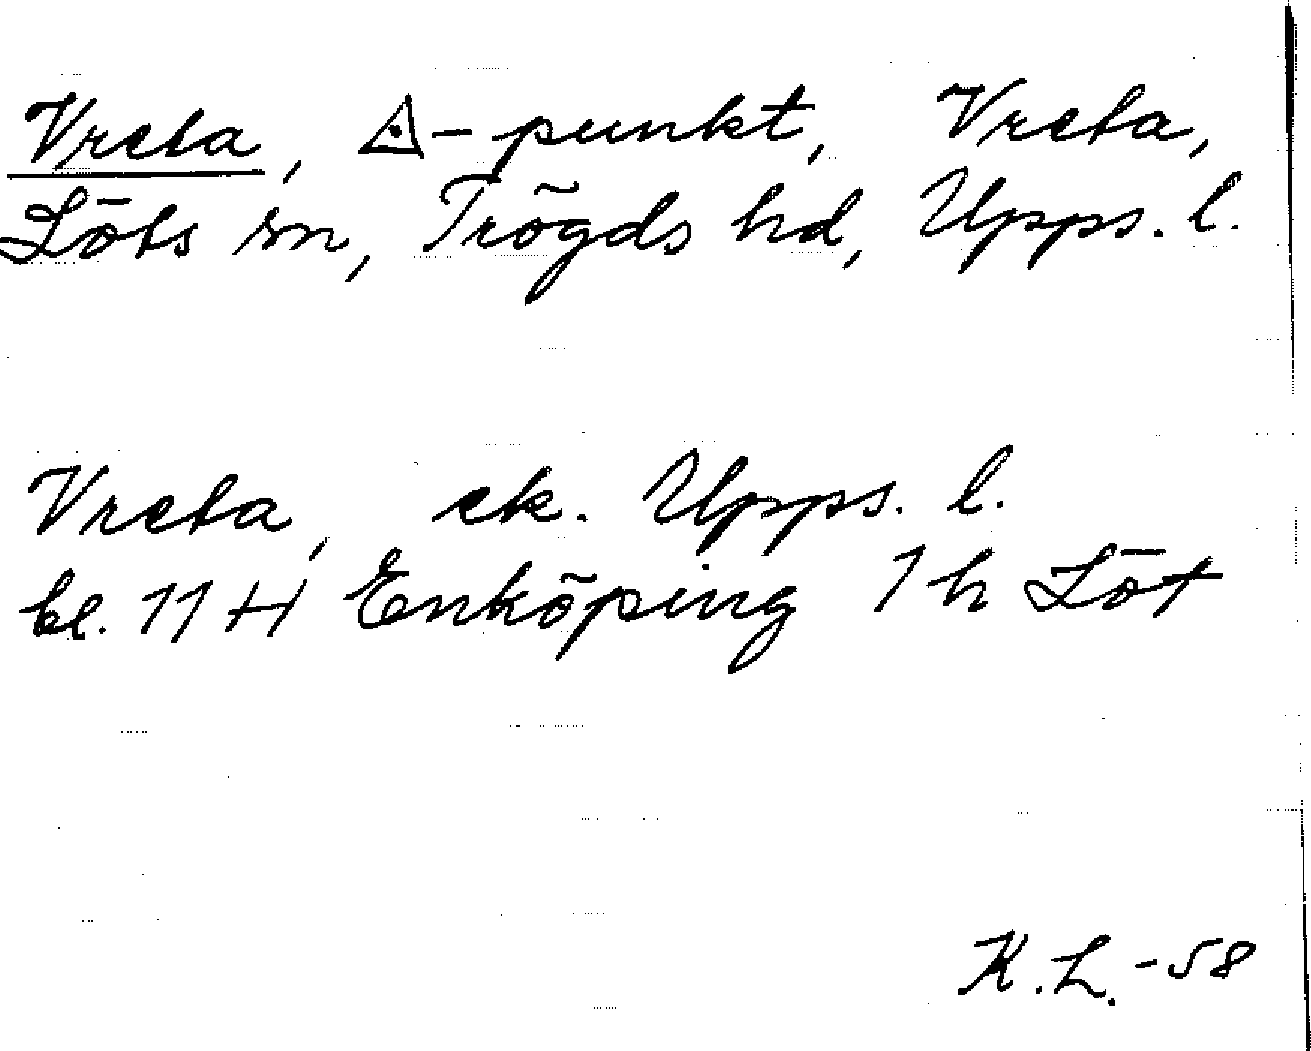 Vreta, ◬-punkt, Vreta,
Löts sn, Trögds hd, Upps. l.
Vreta, ek. Upps. l.
bl. 11 H Enköping 1 h Löt
K.L. -58